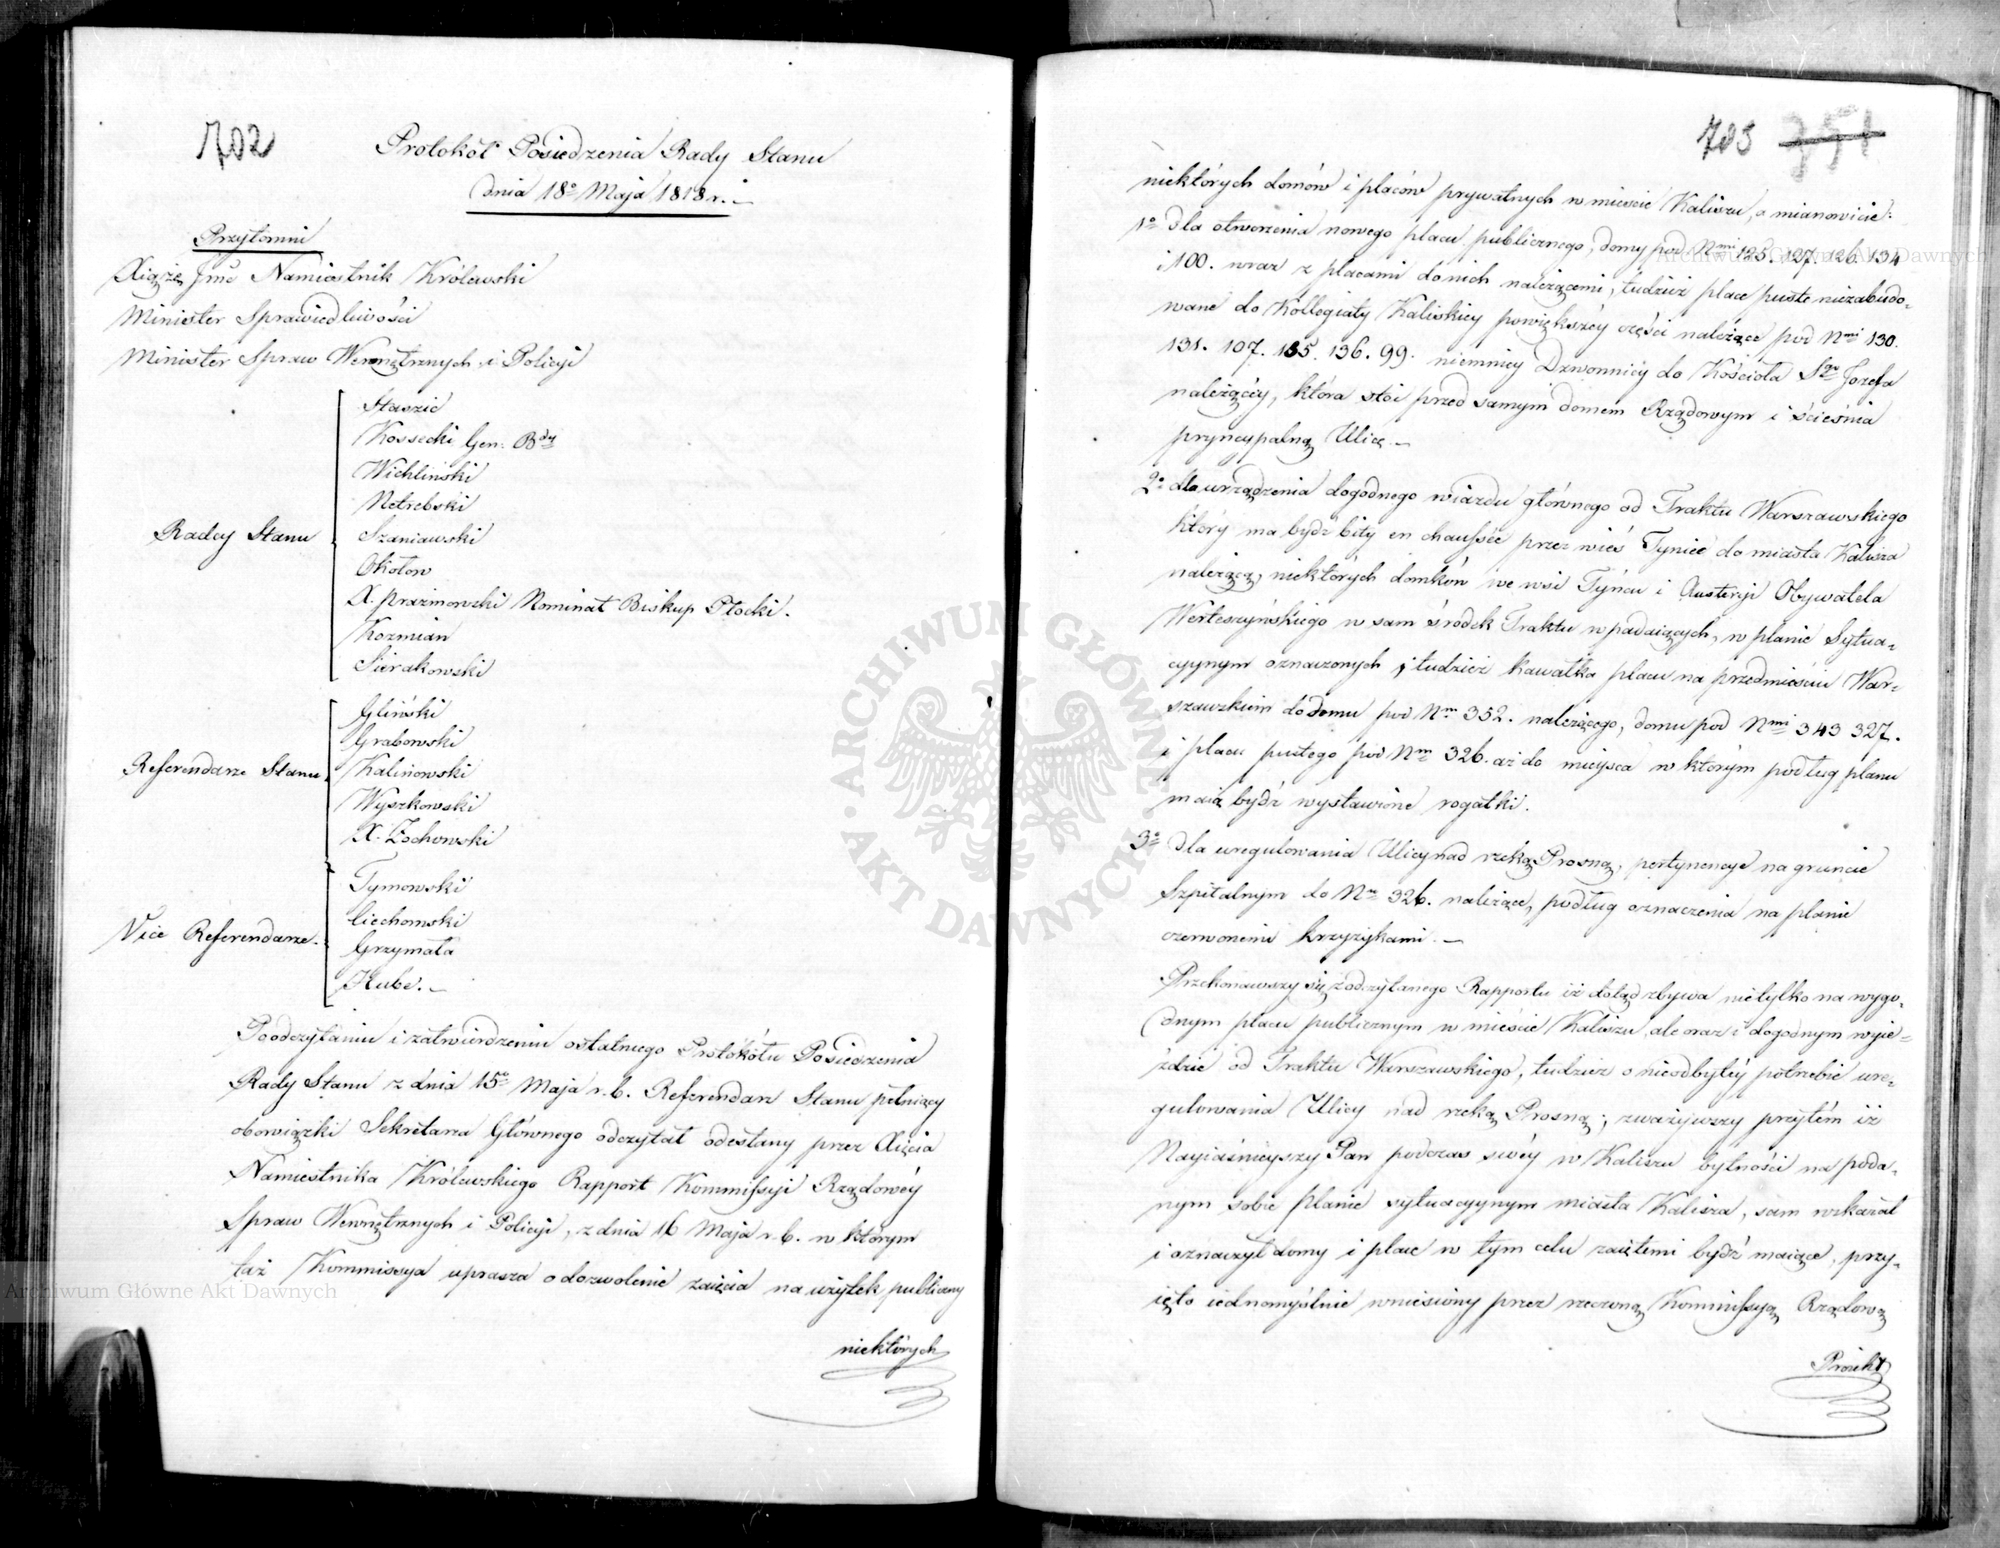 702
Protokół Posiedzenia Rady Stanu
dnia 18º Maja 1818 r. –
Przytomni
Xiąże Jmć Namiestnik Królewski
Minister Sprawiedliwości
Minister Spraw Wewnętrznych i Policyi
Radcy Stanu
Staszic
Kossecki Gen. Bdy
Wichliński
Netrebski
Szaniawski
Okołow
X. prażmowski Nominat Biskup Płocki.
Kozmian
Sierakowski
Referendarze Stanu
Gliński
Grabowski
Kalinowski
Wyszkowski
X. Żochowski
Vice Referendarze.
Tymowski
Ciechomski
Grzymała
Hube. –
Po odczytaniu i zatwierdzeniu ostatniego Protokółu Posiedzenia
Rady Stanu z dnia 15º Maja r. b. Referendarz Stanu pełniący
obowiązki Sekretarza Głównego odczytał odesłany przez Xięcia
Namiestnika Królewskiego Rapport Kommissyi Rządowéy
Spraw Wewnętrznych i Policyi, z dnia 16 Maja r. b. w którym
taż Kommissya uprasza o dozwolenie zaięcia na użytek publiczny
niektórych
703 751
niektórych domów i placów prywatnych w mieście Kaliszu, a mianowicie:
1º dla otworzenia nowego placu publicznego, domy pod Nmi 125. 127. 126. 134
i 100. wraz z placami do nich należącemi, tudzież place puste niezabudo-
wane do Kollegiaty Kaliskiey powiększéy części należące pod Nmi 130.
131. 107. 135. 136. 99. niemniey Dzwonnicy do Kościoła Sgo Jozefa
należącéy, która stoi przed samym domem Rządowym i ścieśnia
pryncypalną Ulicę. –
2º dla urządzenia dogodnego wiazdu głównego od Traktu Warszawskiego
który ma bydź bity en chaussée przez wieś Tyniec do miasta Kalisza
należącą, niektórych domków we wsi Tyńcu i Austeryi Obywatela
Werteszyńskiego w sam środek Traktu wpadaiących, w planie Sytua-
cyynym oznaczonych, tudzież kawałka placu na przedmieściu War-
szawskiem do domu pod Nm 352. należącego, domu pod Nmi 343 327.
i placu pustego pod Nm 326. aż do mieysca w którym podług planu
maią bydź wystawione rogatki.
3º dla uregulowania Ulicy nad rzeką Prosną, pertynencye na gruncie
Szpitalnym do Nru 326. należące, podług oznaczenia na planie
czerwonemi krzyżykami. –
Przekonawszy się z odczytanego Rapportu iż dotąd zbywa nietylko na wygo-
dnym placu publicznym w mieście Kaliszu, ale oraz i dogodnym wyie-
ździe od Traktu Warszawskiego, tudzież o nieodbytéy potrzebie ure-
gulowania Ulicy nad rzeką Prosną; zważywszy przytém iż
Nayiaśnieyszy Pan podczas swéy w Kaliszu bytności na poda-
nym sobie planie sytuacyynym miasta Kalisza, sam wskazał
i oznaczył domy i place w tym celu zaiętemi bydź maiące, przy-
ięto iednomyślnie wniesiony przez rzeczoną Kommissyą Rządową
Proiekt
Archiwum Główne Akt Dawnych
Archiwum Główne Akt Dawnych
ARCHIWUM GŁÓWNE AKT DAWNYCH